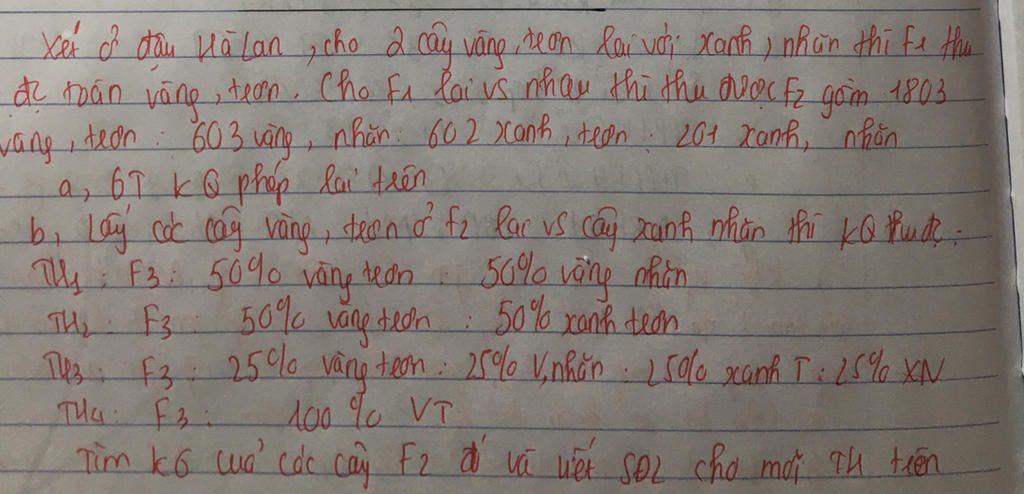 Xét ở đậu Hà Lan, cho 2 cây vàng, trơn lai với xanh, nhăn thì F1 thu
đc toàn vàng, trơn. Cho F1 lai vs nhau thì thu được F2 gồm 1803
vàng, trơn : 603 vàng, nhăn : 602 xanh, trơn : 201 xanh, nhăn
a, GT KQ phép lai trên
b, Lấy các cây vàng, trơn ở F2 lai vs cây xanh nhăn thì KQ thu đc :
TH1 : F3 : 50% vàng trơn : 50% vàng nhăn
TH2 : F3 : 50% vàng trơn : 50% xanh trơn
TH3 : F3 : 25% vàng trơn : 25% V, nhăn : 25% xanh T : 25% XN
TH4 : F3 : 100% VT
Tìm KG của các cây F2 đó và viết SĐL cho mỗi TH trên